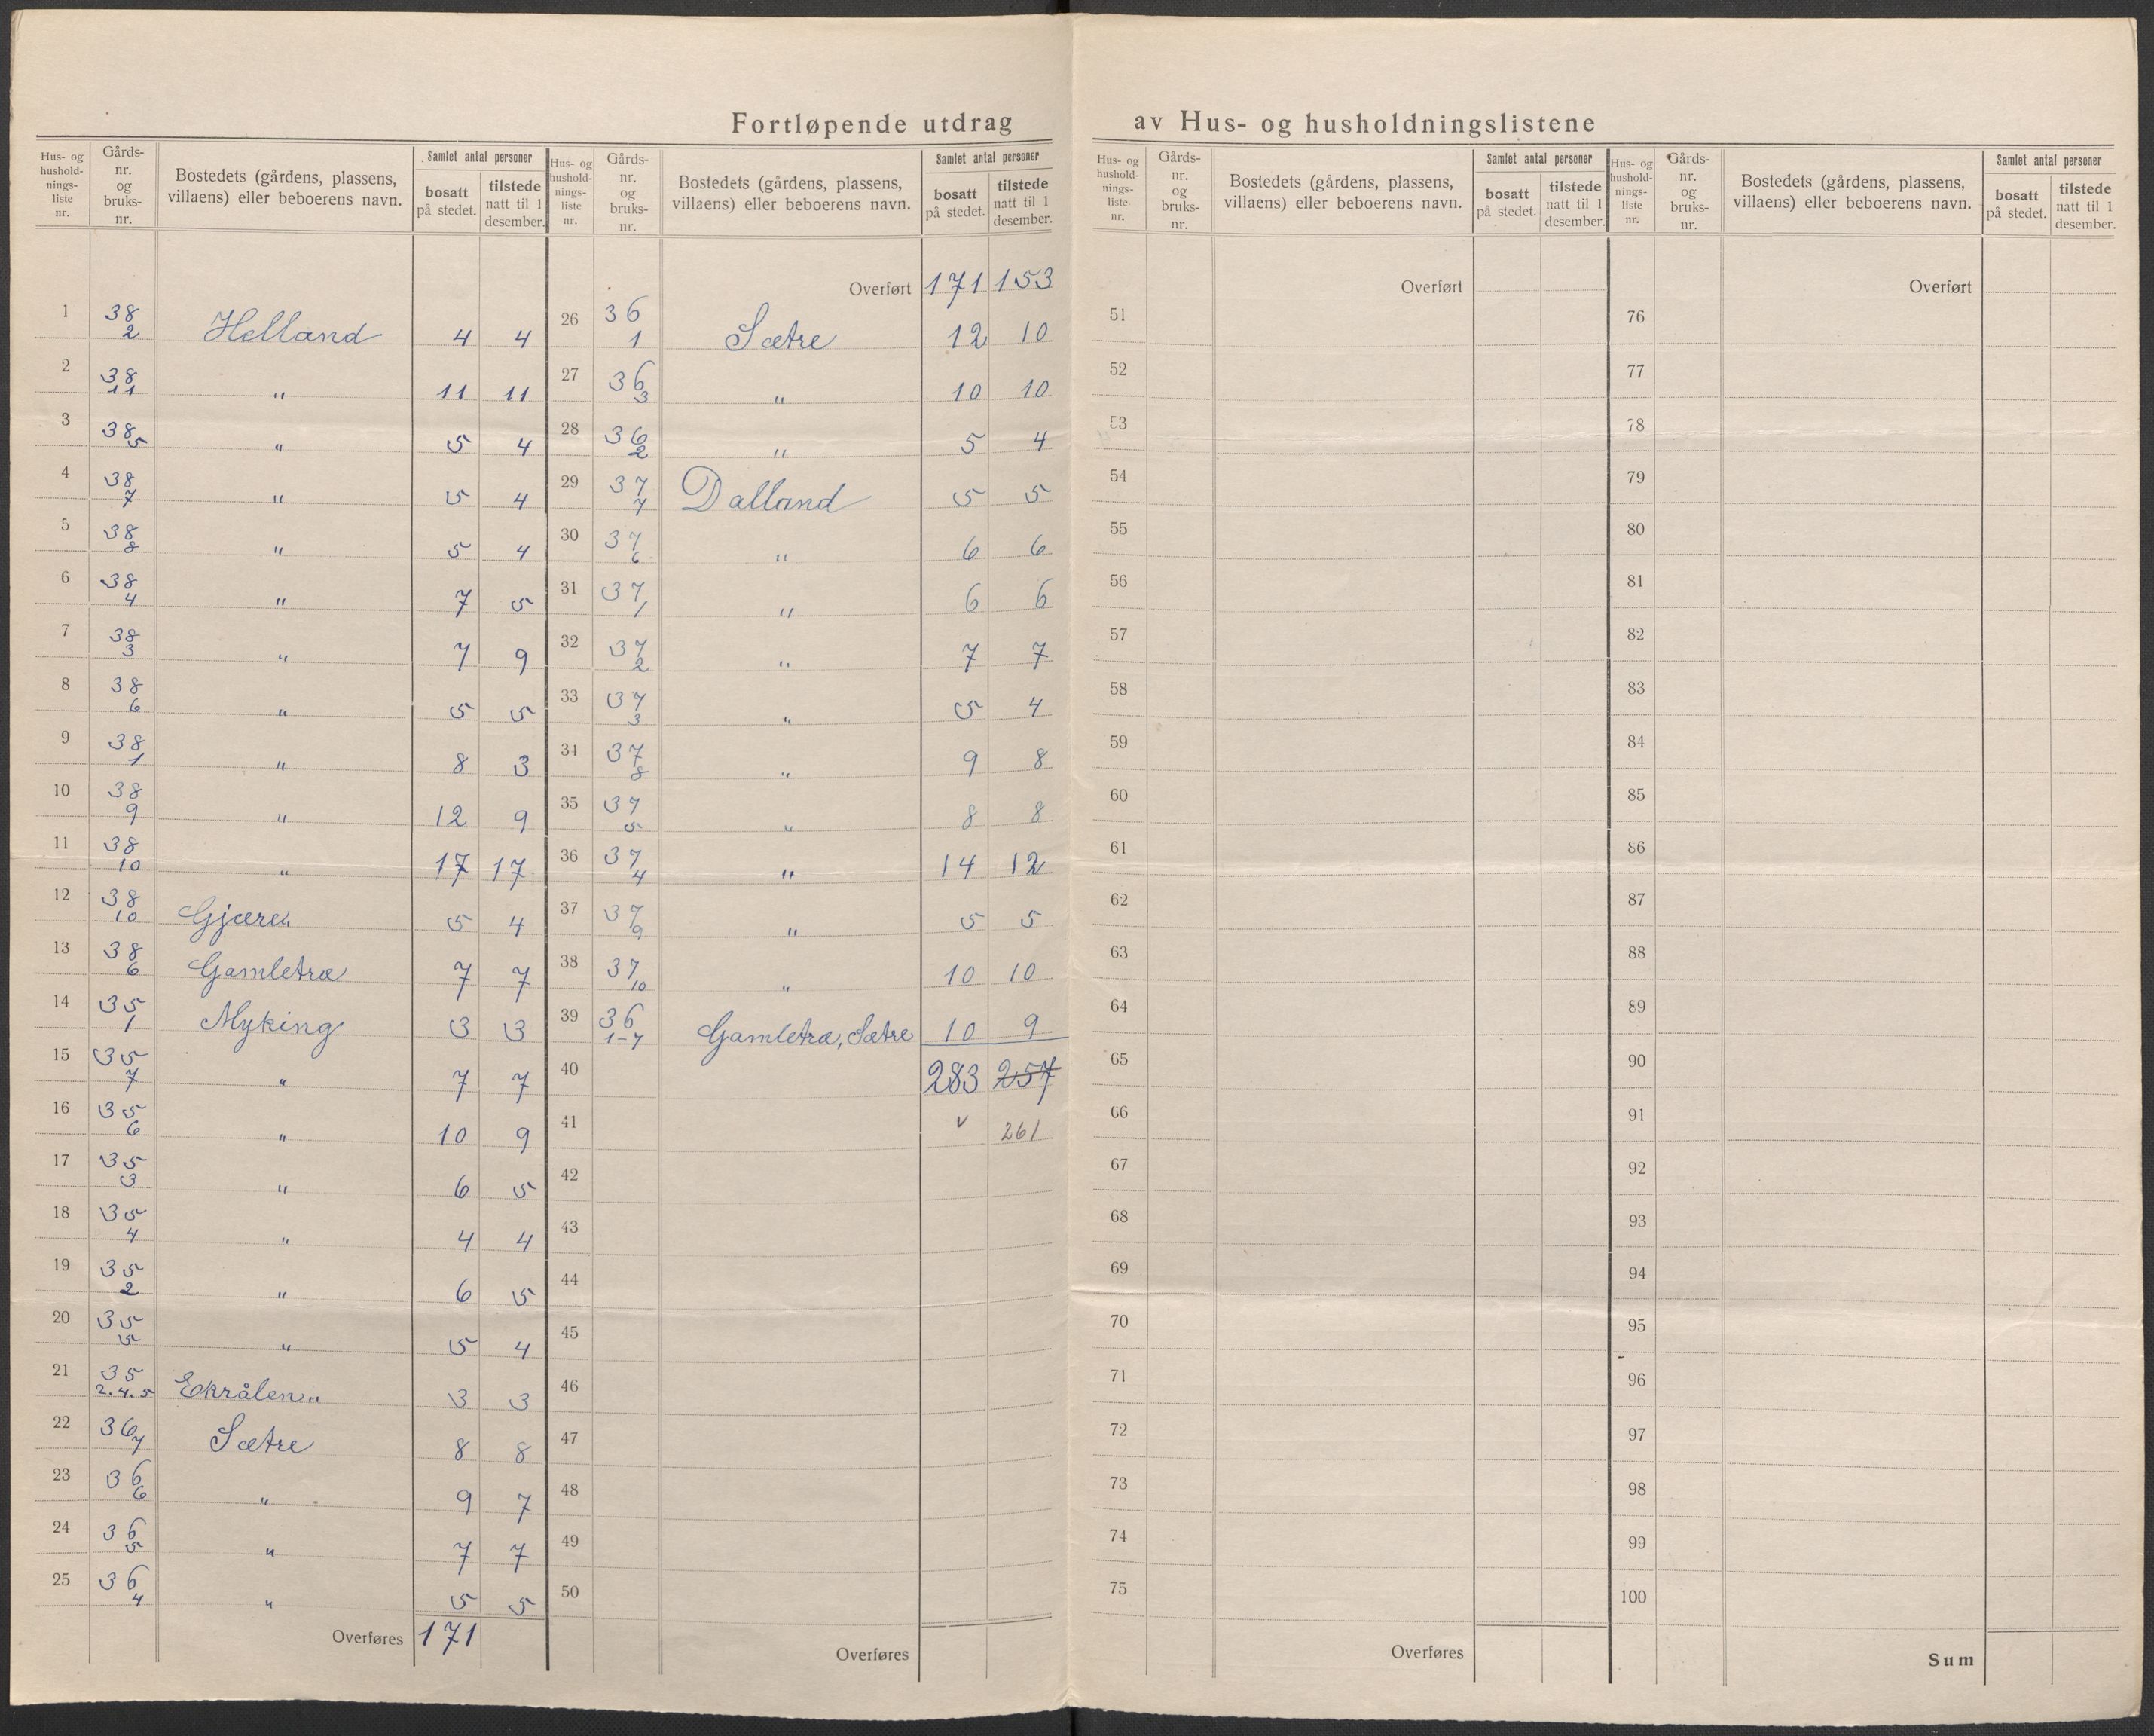 Fortløpende utdrag av Hus- og husholdningslistene
Hus- og hushold-nings-liste nr. | Gårds-nr. og bruks-nr. | Bostedets (gårdens, plassens, villaens) eller beboerens navn. | Samlet antal personer | bosatt på stedet. | tilstede natt til 1 desember.
1 38/2 Helland 4 4
2 38/11 " 11 11
3 38/5 " 5 4
4 38/7 " 5 4
5 38/8 " 5 4
6 38/4 " 7 5
7 38/3 " 7 9
8 38/6 " 5 5
9 38/1 " 8 3
10 38/9 " 12 9
11 38/10 " 17 17
12 38/10 Gjæret 5 4
13 38/6 Gamletræ 7 7
14 35/1 Myking 3 3
15 35/7 " 7 7
16 35/6 " 10 9
17 35/3 " 6 5
18 35/4 " 4 4
19 35/2 " 6 5
20 35/5 " 5 4
21 35/2.4.5 Ekrålen " 3 3
22 36/7 Sætre 8 8
23 36/6 " 9 7
24 36/5 " 7 7
25 36/4 " 5 5
Overføres 171
Hus- og hushold-nings-liste nr. | Gårds-nr. og bruks-nr. | Bostedets (gårdens, plassens, villaens) eller beboerens navn. | Samlet antal personer | bosatt på stedet. | tilstede natt til 1 desember.
Overført 171 153
26 36/1 Sætre 12 10
27 36/3 " 10 10
28 36/2 " 5 4
29 37/7 Dalland 5 5
30 37/6 " 6 6
31 37/1 " 6 6
32 37/2 " 7 7
33 37/3 " 5 4
34 37/8 " 9 8
35 37/5 " 8 8
36 37/4 " 14 12
37 37/9 " 5 5
38 37/10 " 10 10
39 36/1-7 Gamletræ, Sætre 10 9
40 283 257
41 v 261
42
43
44
45
46
47
48
49
50
Overføres
Hus- og hushold-nings-liste nr. | Gårds-nr. og bruks-nr. | Bostedets (gårdens, plassens, villaens) eller beboerens navn. | Samlet antal personer | bosatt på stedet. | tilstede natt til 1 desember.
Overført
51
52
53
54
55
56
57
58
59
60
61
62
63
64
65
66
67
68
69
70
71
72
73
74
75
Overføres
Hus- og hushold-nings-liste nr. | Gårds-nr. og bruks-nr. | Bostedets (gårdens, plassens, villaens) eller beboerens navn. | Samlet antal personer | bosatt på stedet. | tilstede natt til 1 desember.
Overført
76
77
78
79
80
81
82
83
84
85
86
87
88
89
90
91
92
93
94
95
96
97
98
99
100
Sum